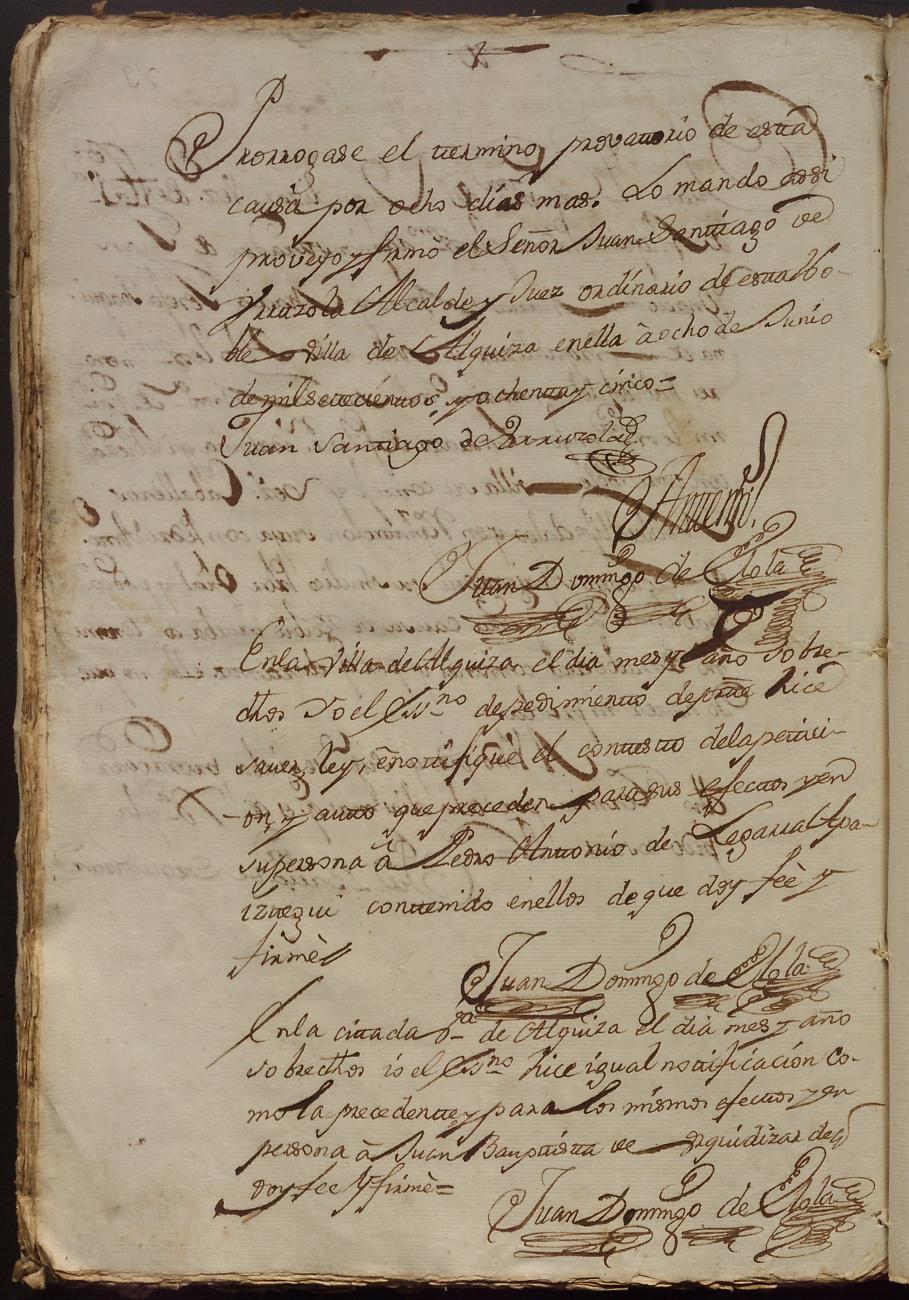 Prorrogase el termino provatorio de esta
causa por ocho días mas. Lo mando assi
proveyo y firmó el Señor Juan Santiago de
Arrazola Alcalde y Juez ordinario de esta No-
ble Villa de Alquiza en ella à ocho de Junio
de mil setecientos y ochenta y cinco =
Juan Santiago de Arrazola
Antemi
Juan Domingo de Olola
En la Villa de Alquiza el dia mes y año sobre-
dhos Yo el Essno de pedimiento de parte hice
saver, ley, e notifiqué el contesto de la petici-
on y auto que preceden para sus efectos y en
su persona à Pedro Antonio de Legarra Apa-
iztegui contenido en ellos de que doy feè y
firmè
Juan Domingo de Olola
En la citada Va de Alquiza el dia mes y año
sobredhos io el Essno hice igual notificación co-
mo la precedente y para los mismos efectos y en
persona à Juan Bauptista de de q
doy fee y firmè =
Juan Domingo de Olola